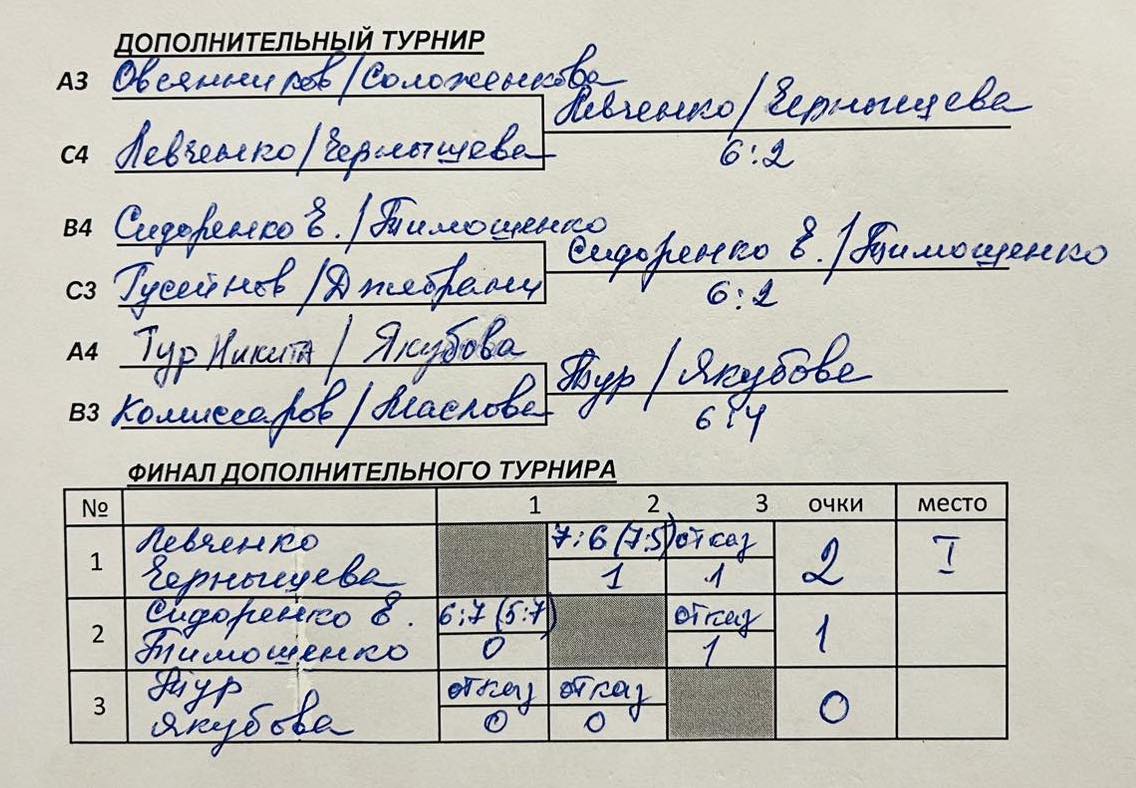 ДОПОЛНИТЕЛЬНЫЙ ТУРНИР
А3 Овсянников/Соложенкова
Левченко/Чернышева
С4 Левченко/Чернышева
6:2
В4 Сидоренко Е./Тимошенко
Сидоренко Е./Тимошенко
С3 Гусейнов/Джебраил
6:2
А4 Тур Никита/Якубова
Тур/Якубова
В3 Комиссаров/Маслова
6:4
ФИНАЛ ДОПОЛНИТЕЛЬНОГО ТУРНИРА
№ 1 2 3 очки место
1 Левченко Чернышева 7:6 (7:5) 1 отказ 1 2 I
2 Сидоренко Е. Тимошенко 6:7 (5:7) 0 отказ 1 1
3 Тур Якубова отказ 0 отказ 0 0